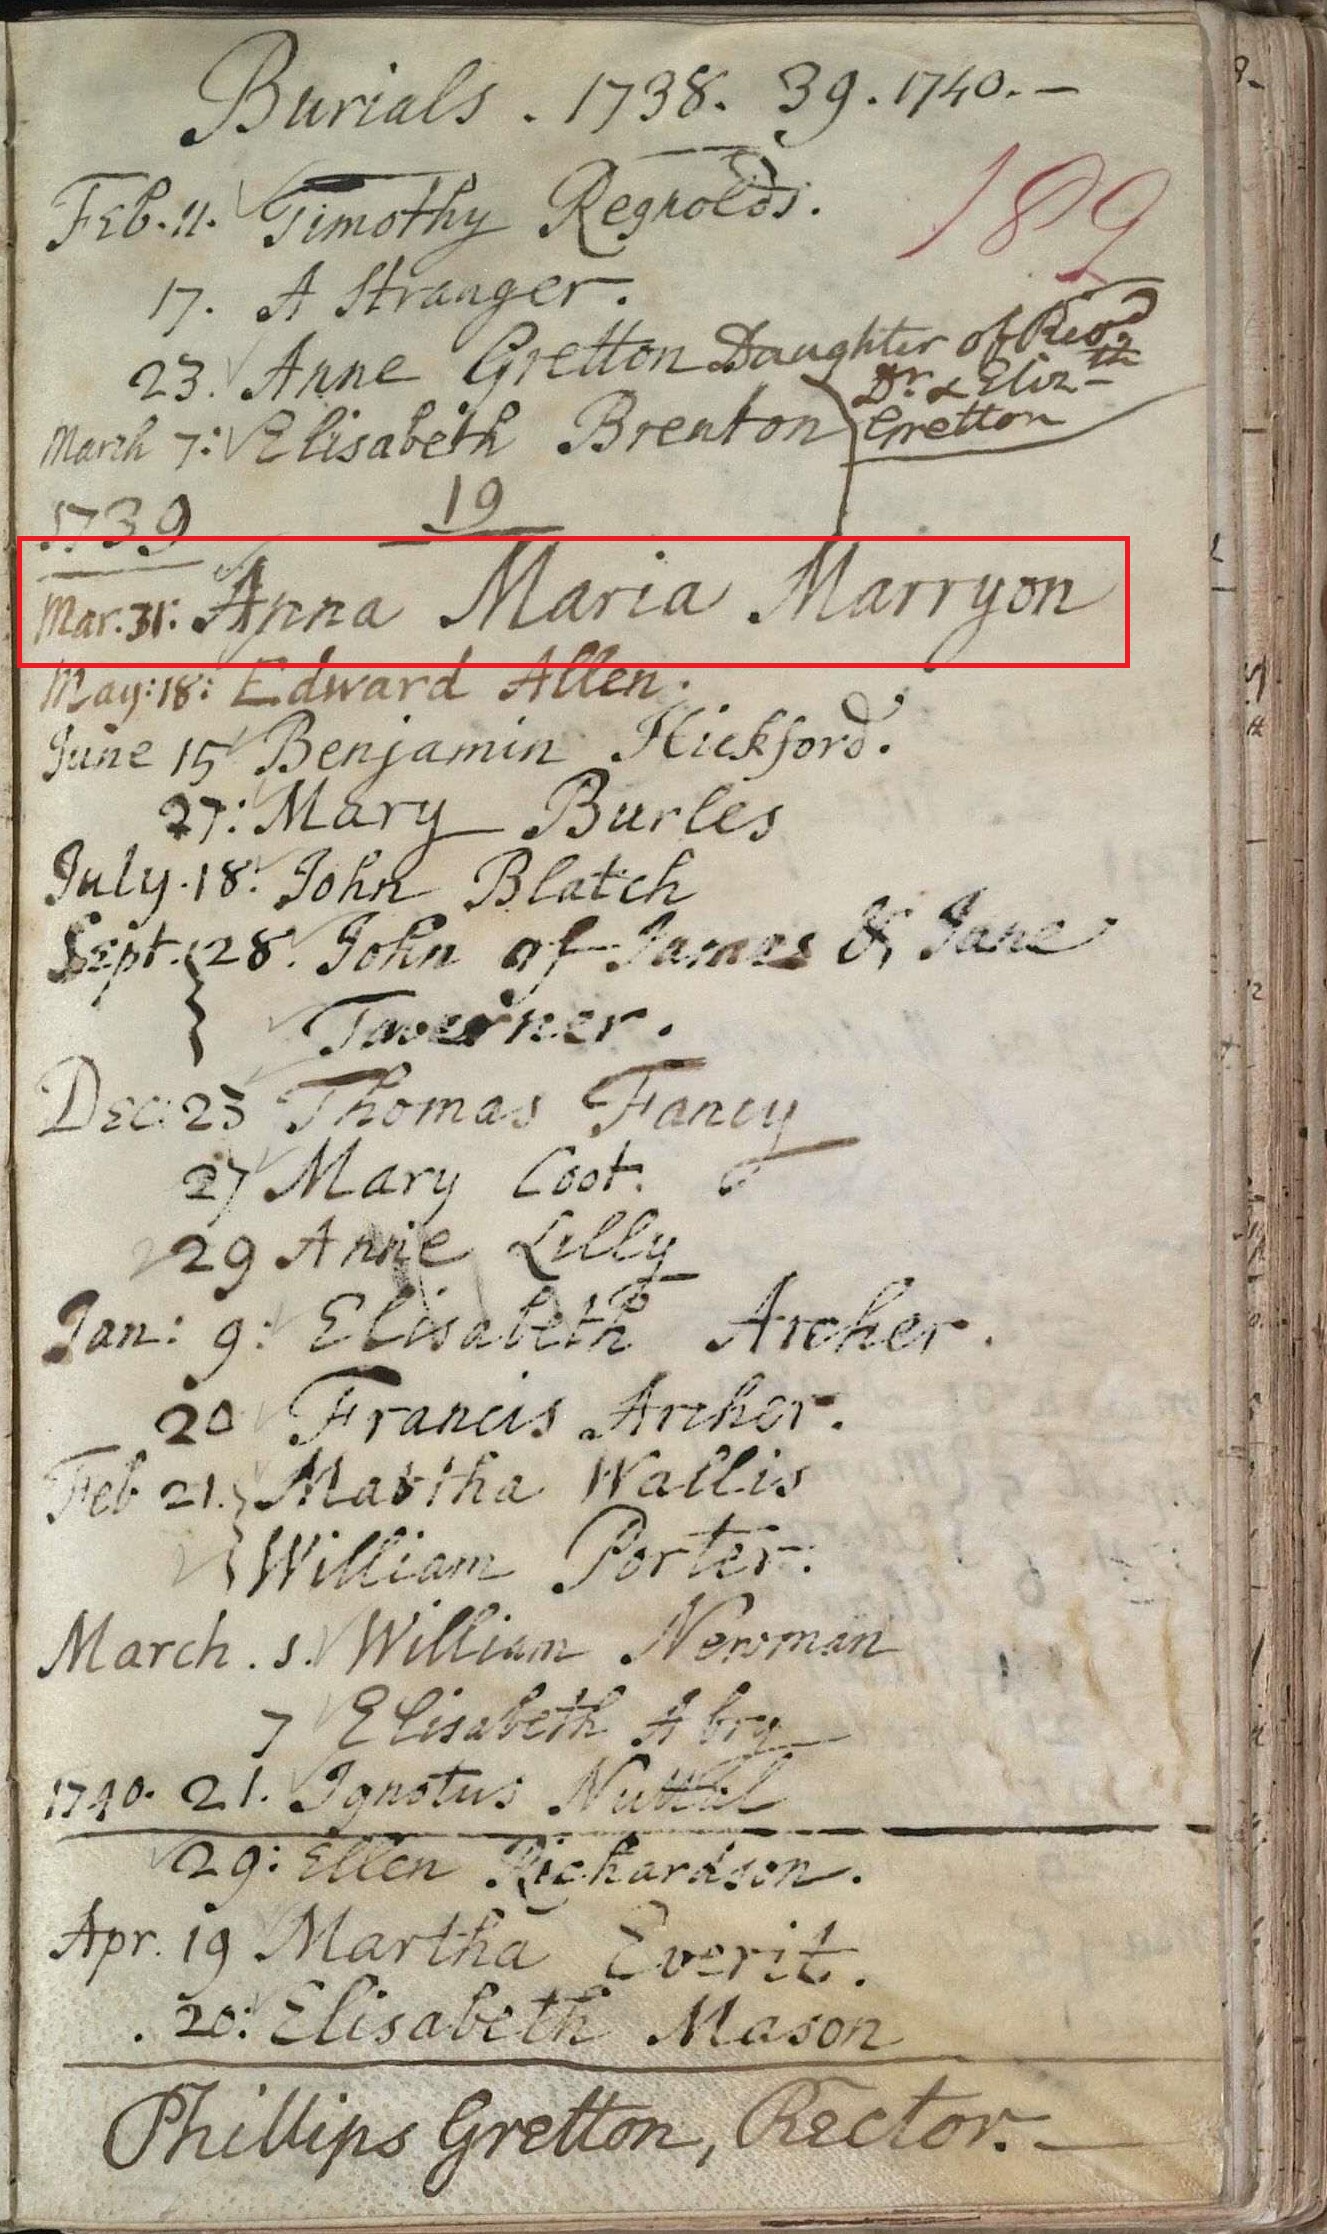 Burials . 1738. 39. 1740. —
189
Feb. 11. Timothy Regnolds.
17. A Stranger.
23. Anne Gretton Daughter of Revd. Dr. & Elizth Gretton
March 7: Elisabeth Brenton
19
1739
Mar. 31: Anna Maria Marryon
May: 18: Edward Allen.
June 15 Benjamin Hickford.
27: Mary Burles
July. 18: John Blatch
Sept. 28. John of James & Jane
Taverner.
Dec: 23 Thomas Fancy
27 Mary Coot.
29 Anne Lilly
Jan: 9: Elisabeth Archer.
20 Francis Archer.
Feb 21. Martha Wallis
William Porter.
March . 5. William Newman
7 Elisabeth Abry
1740. 21. Ignotus Nuttal
29: Ellen Richardson.
Apr. 19 Martha Everit.
. 20: Elisabeth Mason
Phillips Gretton, Rector. —